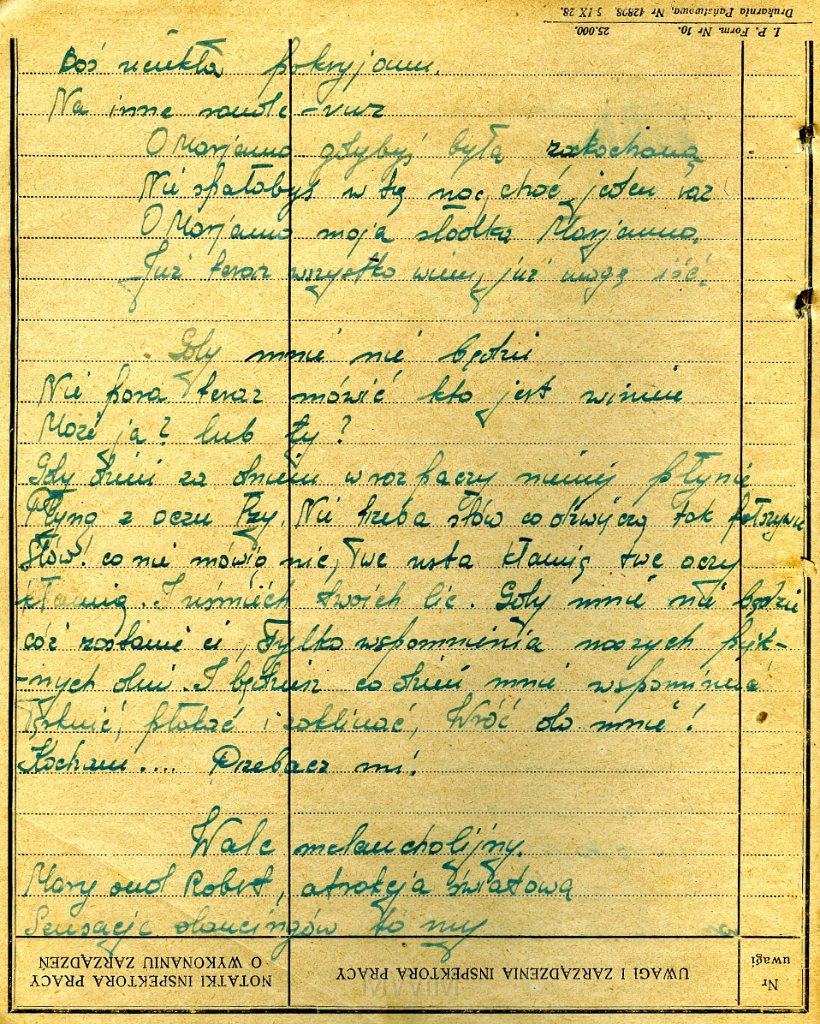 Drukarnia Państwowa, Nr 42898. 5 IX 28.
I. P. Form. Nr 10. 25.000.
Boś uciekła pokryjomu.
Na inne rande-vuz
O Marjanno gdybyś była zakochaną
Nie spałabyś w tę noc, choć jeden raz
O Marjanno moja słodka Marjanno,
Już teraz wszystko wiem, już mogę iść.
Gdy mnie nie będzie
Nie pora teraz mówić kto jest winnie
Może ja? lub ty?
Gdy dzień za dniem w rozpaczy płynie
Płyną z oczu łzy. Nie trzeba słów co dźwięczą tak fałszywie
słów! co nie mówią nic, twe usta kłamią twe oczy
kłamią. I uśmiech twoich lic. Gdy mnie nie będzie
cóż zostanie ci, tylko wspomnienia naszych pięk-
-nych dni. I będziesz co dzień mnie wspominać
Tęsknić, płakać i zaklinać, Wróć do mnie!
Kocham.... Przebacz mi!
Walc melancholijny.
Mary and Robert, atrakcja światowa
Sensacje dancingów to my
NOTATKI INSPEKTORA PRACY O WYKONANIU ZARZĄDZEŃ
UWAGI I ZARZĄDZENIA INSPEKTORA PRACY
Nr uwagi